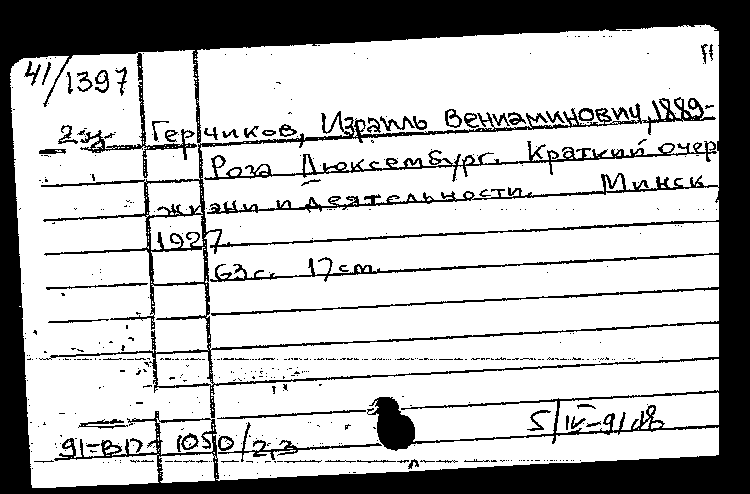 41/1397
2 эк Герчиков, Израиль Вениаминович, 1889-
Роза Люксембург. Краткий очер
жизни и деятельности. Минск,
1927.
63 с. 17 cm.
91-ВП-1050/2,3
5/IV-91